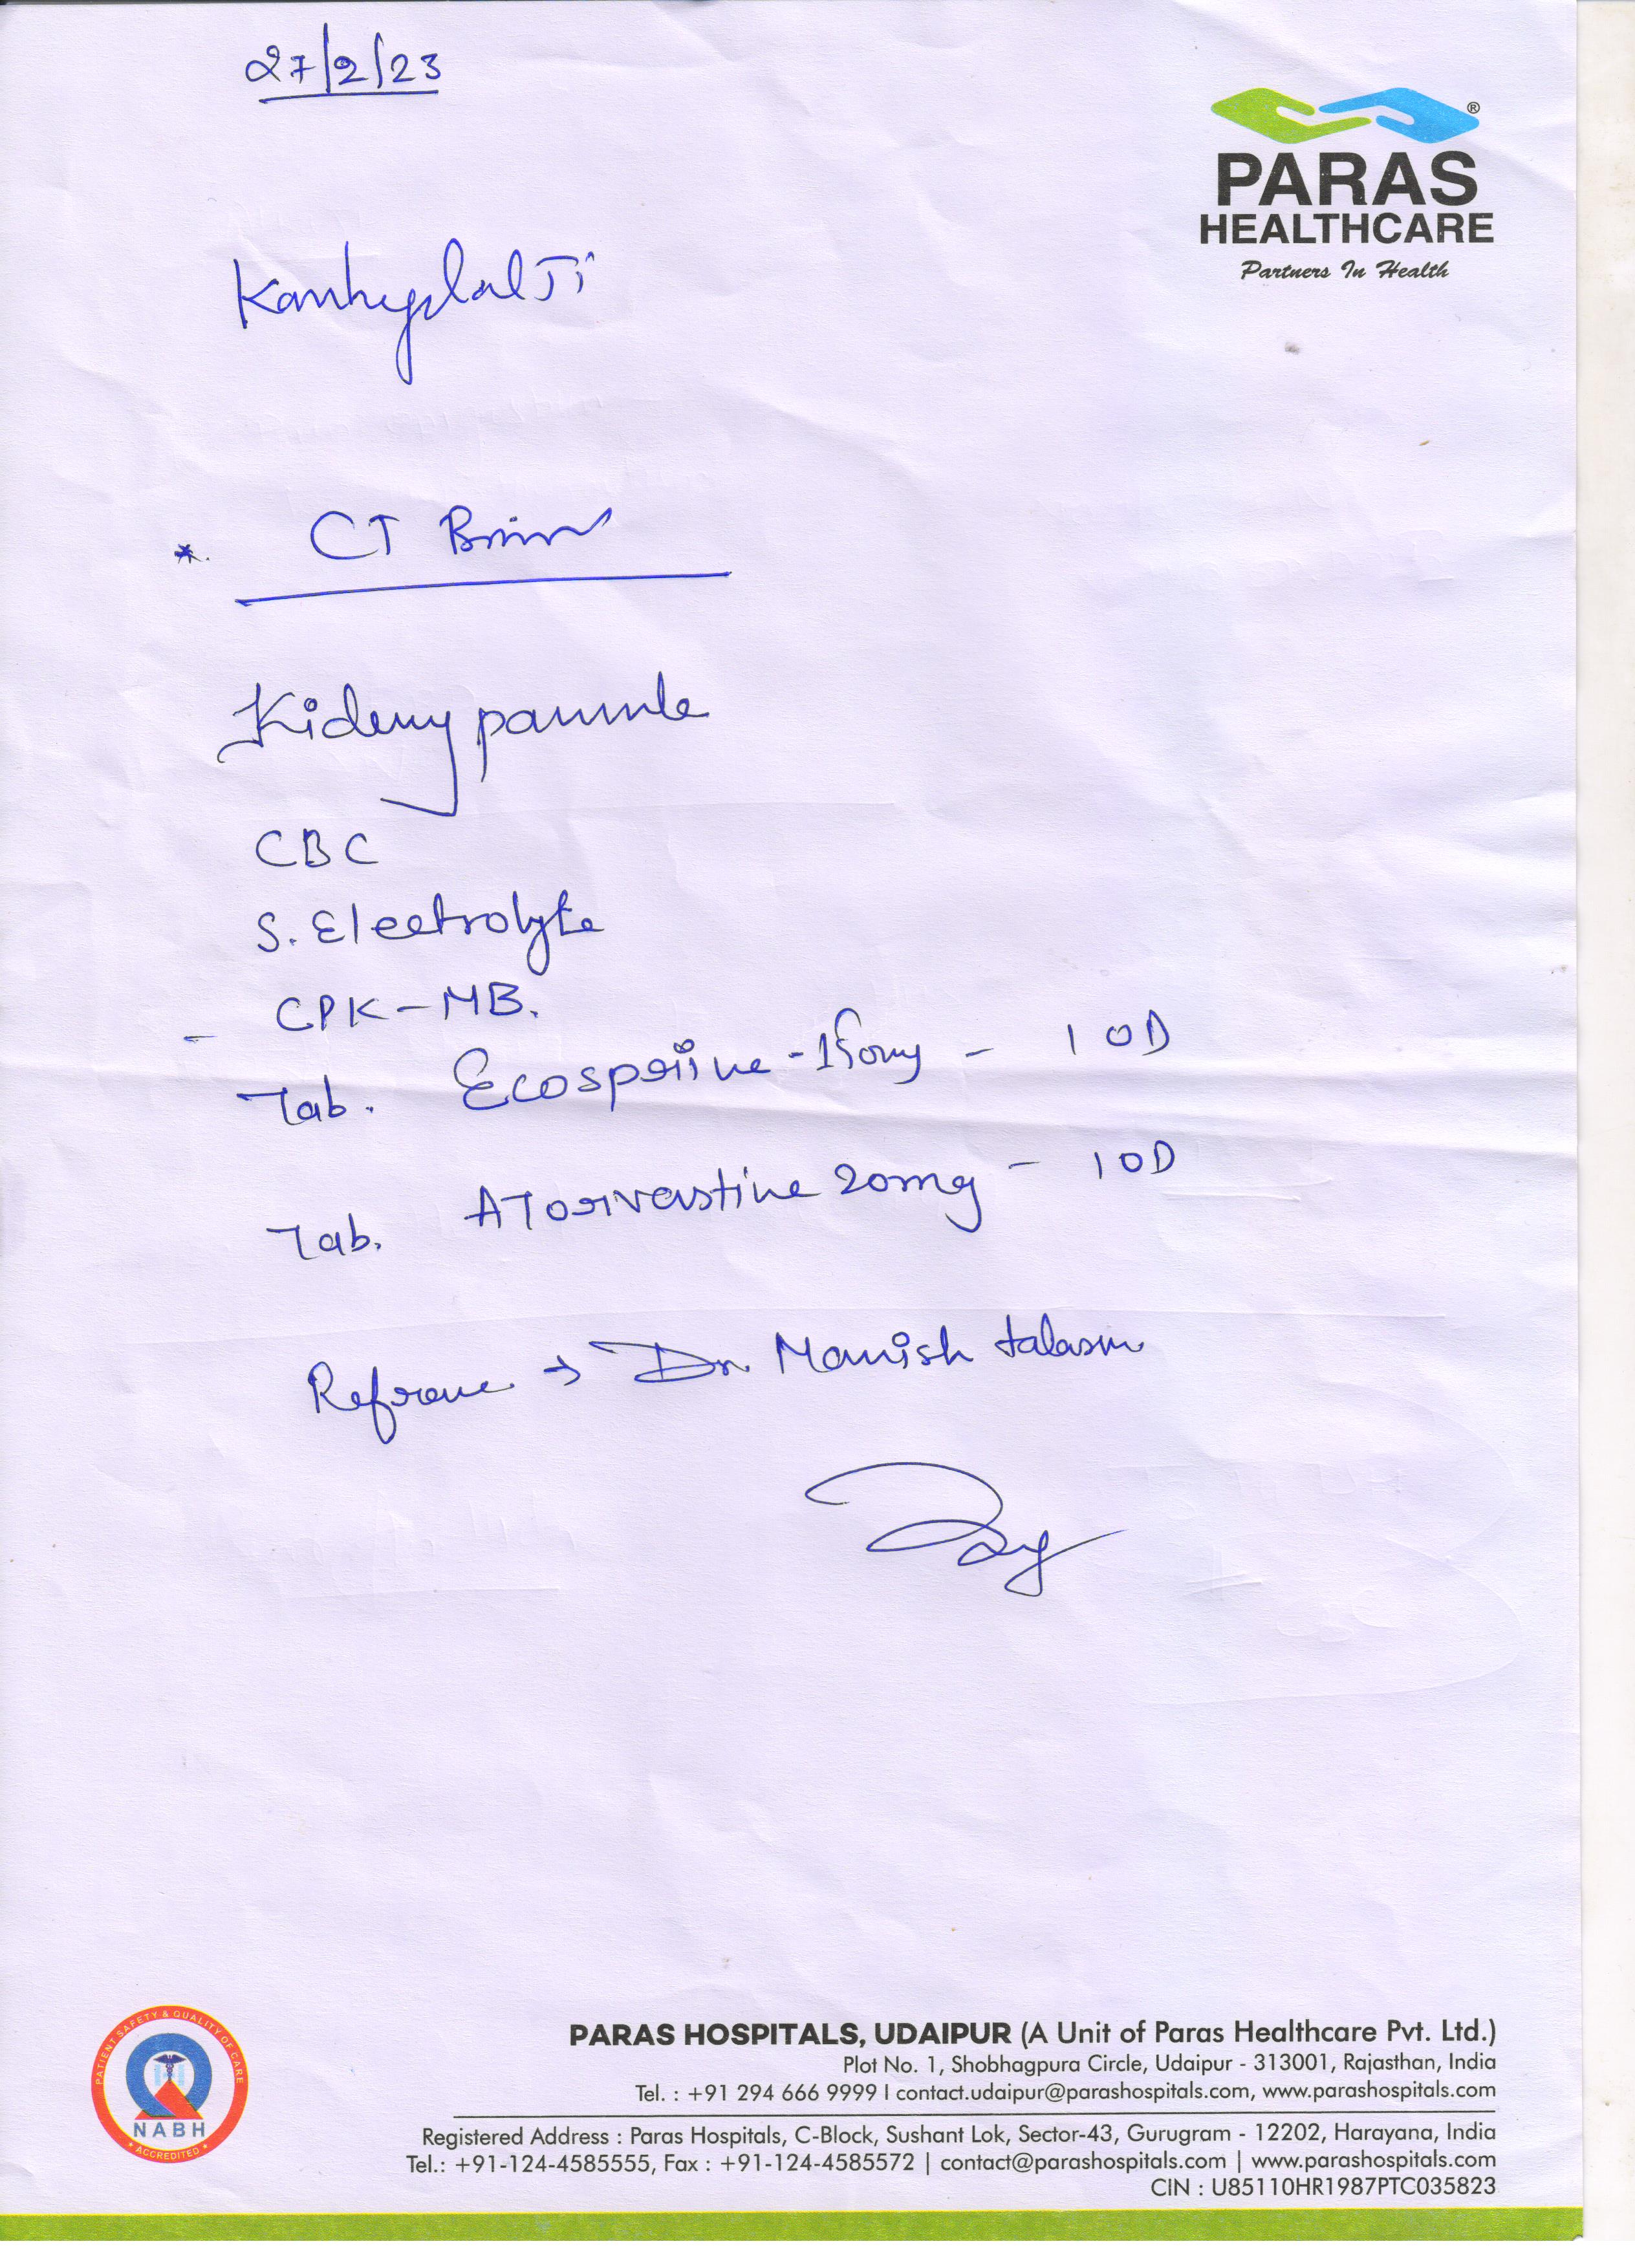 27/2/23
PARAS
HEALTHCARE
Partners In Health
Kanhyalal Ji
*. CT Brain
Kideny
CBC
S. Electrolyte
- CPK-MB.
Tab. Ecospriine - 150mg - 1 OD
Tab. ATorvastine 20mg - 1 OD
→ Dr. Manish
PARAS HOSPITALS, UDAIPUR (A Unit of Paras Healthcare Pvt. Ltd.)
Plot No. 1, Shobhagpura Circle, Udaipur - 313001, Rajasthan, India
Tel. : +91 294 666 9999 I contact.udaipur@parashospitals.com, www.parashospitals.com
PATIENT SAFETY & QUALITY OF CARE
NABH
ACCREDITED
Registered Address : Paras Hospitals, C-Block, Sushant Lok, Sector-43, Gurugram - 12202, Harayana, India
Tel.: +91-124-4585555, Fax : +91-124-4585572 | contact@parashospitals.com | www.parashospitals.com
CIN : U85110HR1987PTC035823